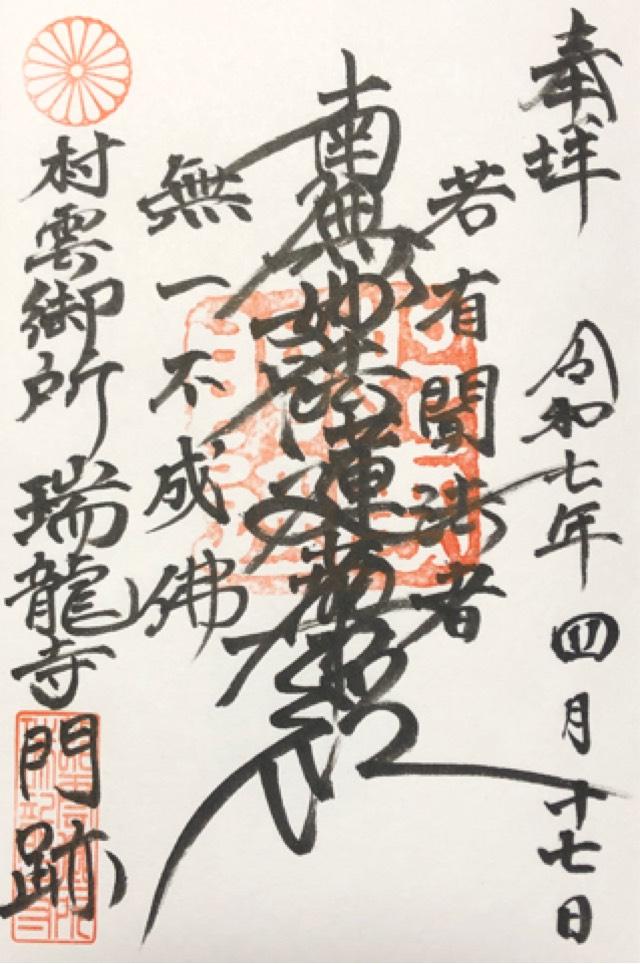 奉拝 令和七年四月十七日
若有聞法者
南無妙法蓮華経
無一不成佛
村雲御所 瑞龍寺門跡